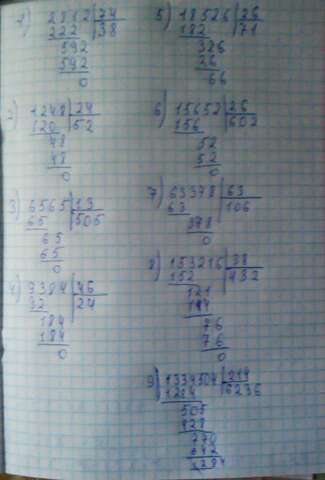 1) 2812 | 74
222 | 38
592
592
0
2) 1248 | 24
120 | 52
48
48
0
3) 6565 | 13
65 | 505
65
65
0
4) 9384 | 46
92 | 24
184
184
0
5) 18526 | 26
182 | 71
326
26
66
6) 15652 | 26
156 | 602
52
52
0
7) 63378 | 63
63 | 106
378
0
8) 153216 | 38
152 | 432
121
114
76
76
0
9) 1334504 | 214
1284 | 6236
505
428
770
642
1284